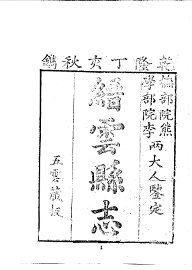 乾隆丁亥秋鐫
撫部院熊
學部院李
兩大人鑒定
縉雲縣志
五雲藏板
1